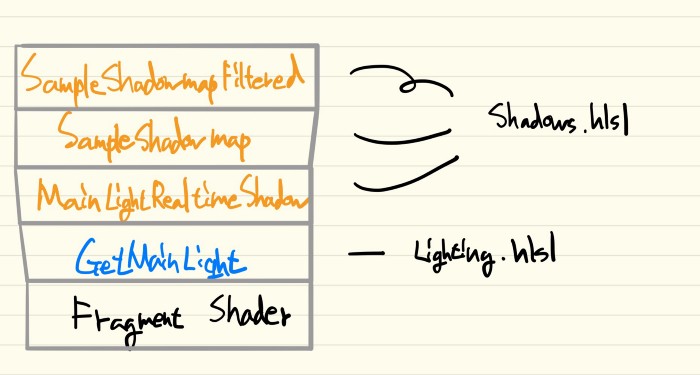 SampleShadowmapFiltered
SampleShadowmap
MainLightRealtimeShadow
GetMainLight
Fragment Shader
Shadows.hlsl
Lighting.hlsl